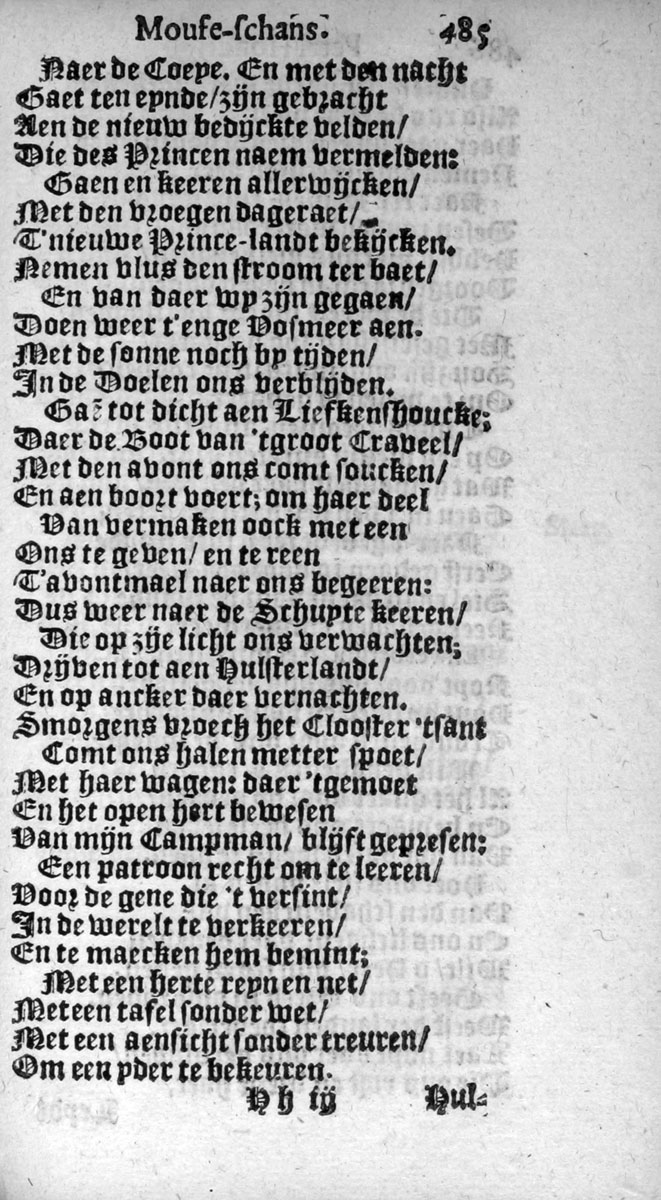 Mouse-schans. 485
Naer de Coepe. En met den nacht
Gaet ten eynde/zijn gebracht
Aen de nieuw bedijckte velden/
Die des Princen naem vermelden:
Gaen en keeren allerwijcken/
Met den vroegen dageraet/
T'nieuwe Prince-landt bekijcken.
Nemen vlus den stroom ter baet/
En van daer wy zijn gegaen/
Doen weer t'enge Vosmeer aen.
Met de sonne noch by tijden/
In de Doelen ons verblijden.
Gaẽ tot dicht aen Liefkenshoucke;
Daer de Boot van 'tgroot Craveel/
Met den avont ons comt soucken/
En aen boort voert; om haer deel
Van vermaken oock met een
Ons te geven/ en te reen
T'avontmael naer ons begeeren:
Dus weer naer de Schuyte keeren/
Die op zije licht ons verwachten;
Drijven tot aen Hulsterlandt/
En op ancker daer vernachten.
Smorgens vroech het Clooster 'tsant
Comt ons halen metter spoet/
Met haer wagen: daer 'tgemoet
En het open hert bewesen
Van mijn Campman/ blijft gepresen:
Een patroon recht om te leeren/
Voor de gene die 't versint/
In de werelt te verkeeren/
En te maecken hem bemint;
Met een herte reyn en net/
Met een tafel sonder wet/
Met een aensicht sonder treuren/
Om een yder te bekeuren.
H h iij Hul-